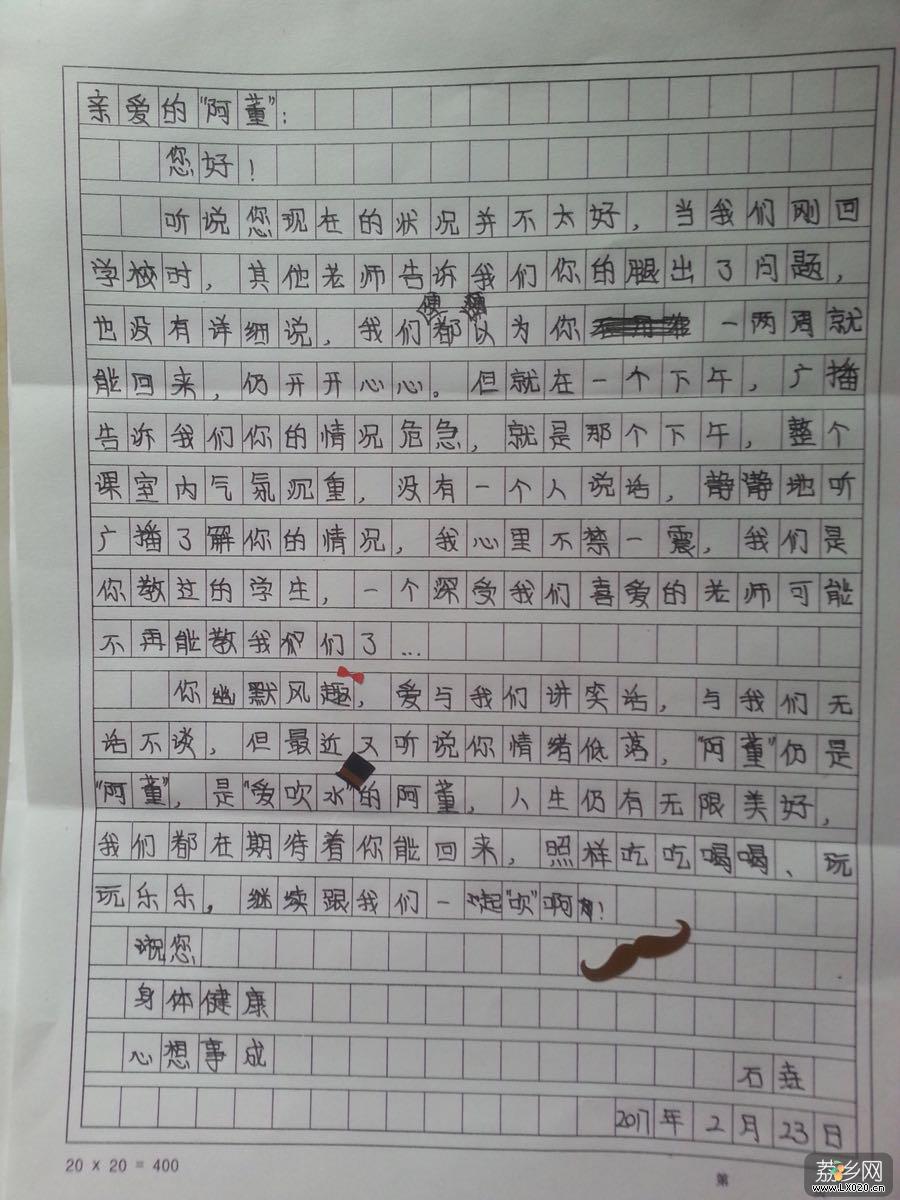 亲爱的“阿董”:
您好!
听说您现在的状况并不太好,当我们刚回
学校时,其他老师告诉我们你的腿出了问题,
也没有详细说,我们都傻傻以为你一两周就
能回来,仍开开心心。但就在一个下午,广播
告诉我们你的情况危急,就是那个下午,整个
课室内气氛沉重,没有一个人说话,静静地听
广播了解你的情况,我心里不禁一震,我们是
你教过的学生,一个深受我们喜爱的老师可能
不再能教我们们了...
你幽默风趣,爱与我们讲笑话,与我们无
话不谈,但最近又听说你情绪低落,“阿董”仍是
“阿董”,是“爱吹水”的阿董,人生仍有无限美好,
我们都在期待着你能回来,照样吃吃喝喝、玩
玩乐乐,继续跟我们一起“吹”啊!
祝您
身体健康
心想事成
石垚
2017年2月23日
20 × 20 = 400
第
荔乡网
www.LX020.cn